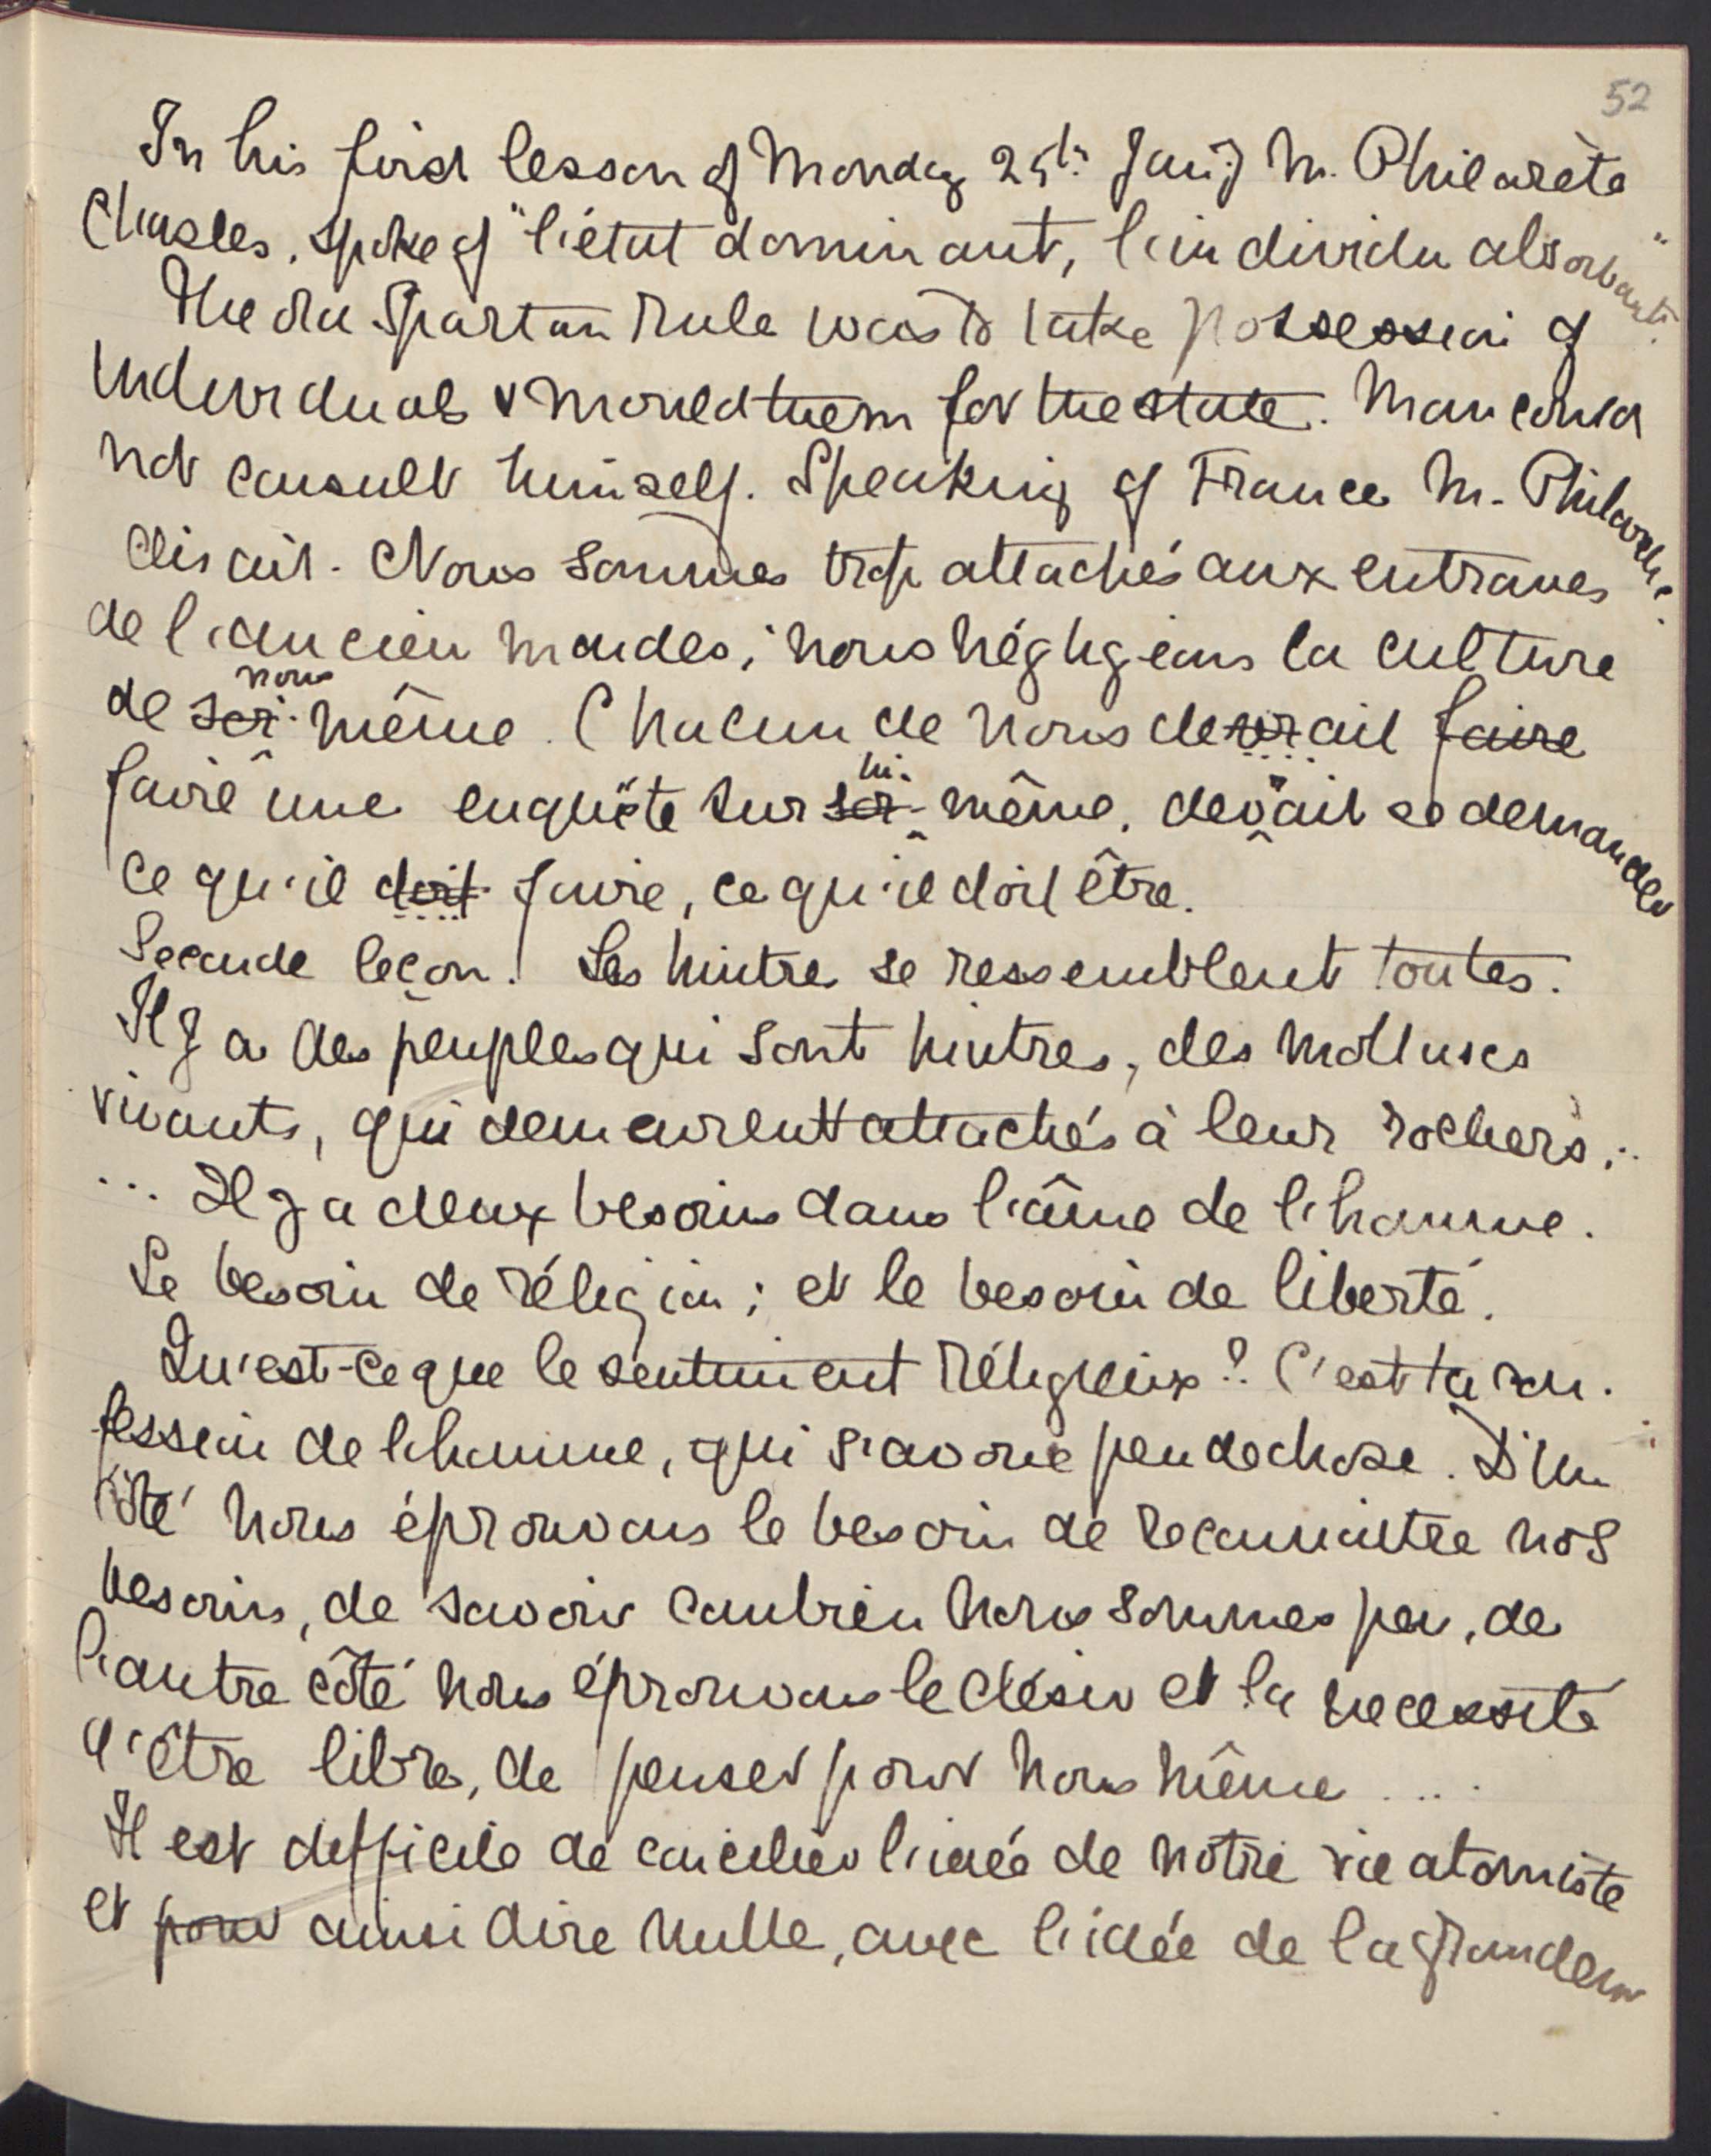 52
In his first lesson of Monday 25th Jany M. Philarète
Chasles, spoke of "l'état dominant, l'individu absorbant".
The old Spartan rule was to take possession of
individuals & mould them for the state. Man could
not consult himself. Speaking of France M. Philarète
disait. Nous sommes trop attachés aux entraves
de l'ancien mondes; nous négligeons la culture
de soi nous même. Chacun de nous devrait faire
faire une enquête sur soi lui-même, devait se demander
ce qu'il doit faire, ce qu'il doit être.
Seconde leçon! Les huitres se ressemblent toutes.
Il y a des peuples qui sont huitres, des molluscs
vivants, qui demeurent attachés à leur rochers...
... Il y a deux besoins dans l'âme de l'homme.
Le besoin de réligion; et le besoin de liberté.
Qu'est-ce que le sentiment réligieux? C'est la con-
fession de l'homme, qui s'avoue peu de chose. D'un
côté nous éprouvons le besoin de reconnaitre nos
besoins, de savoir combien nous sommes peu, de
l'autre côté nous éprouvons le désir et la necessité
d'être libre, de penser pour nous même ...
Il est difficile de concilier l'idée de notre vie atomiste
et pour ainsi dire nulle, avec l'idée de la grandeur